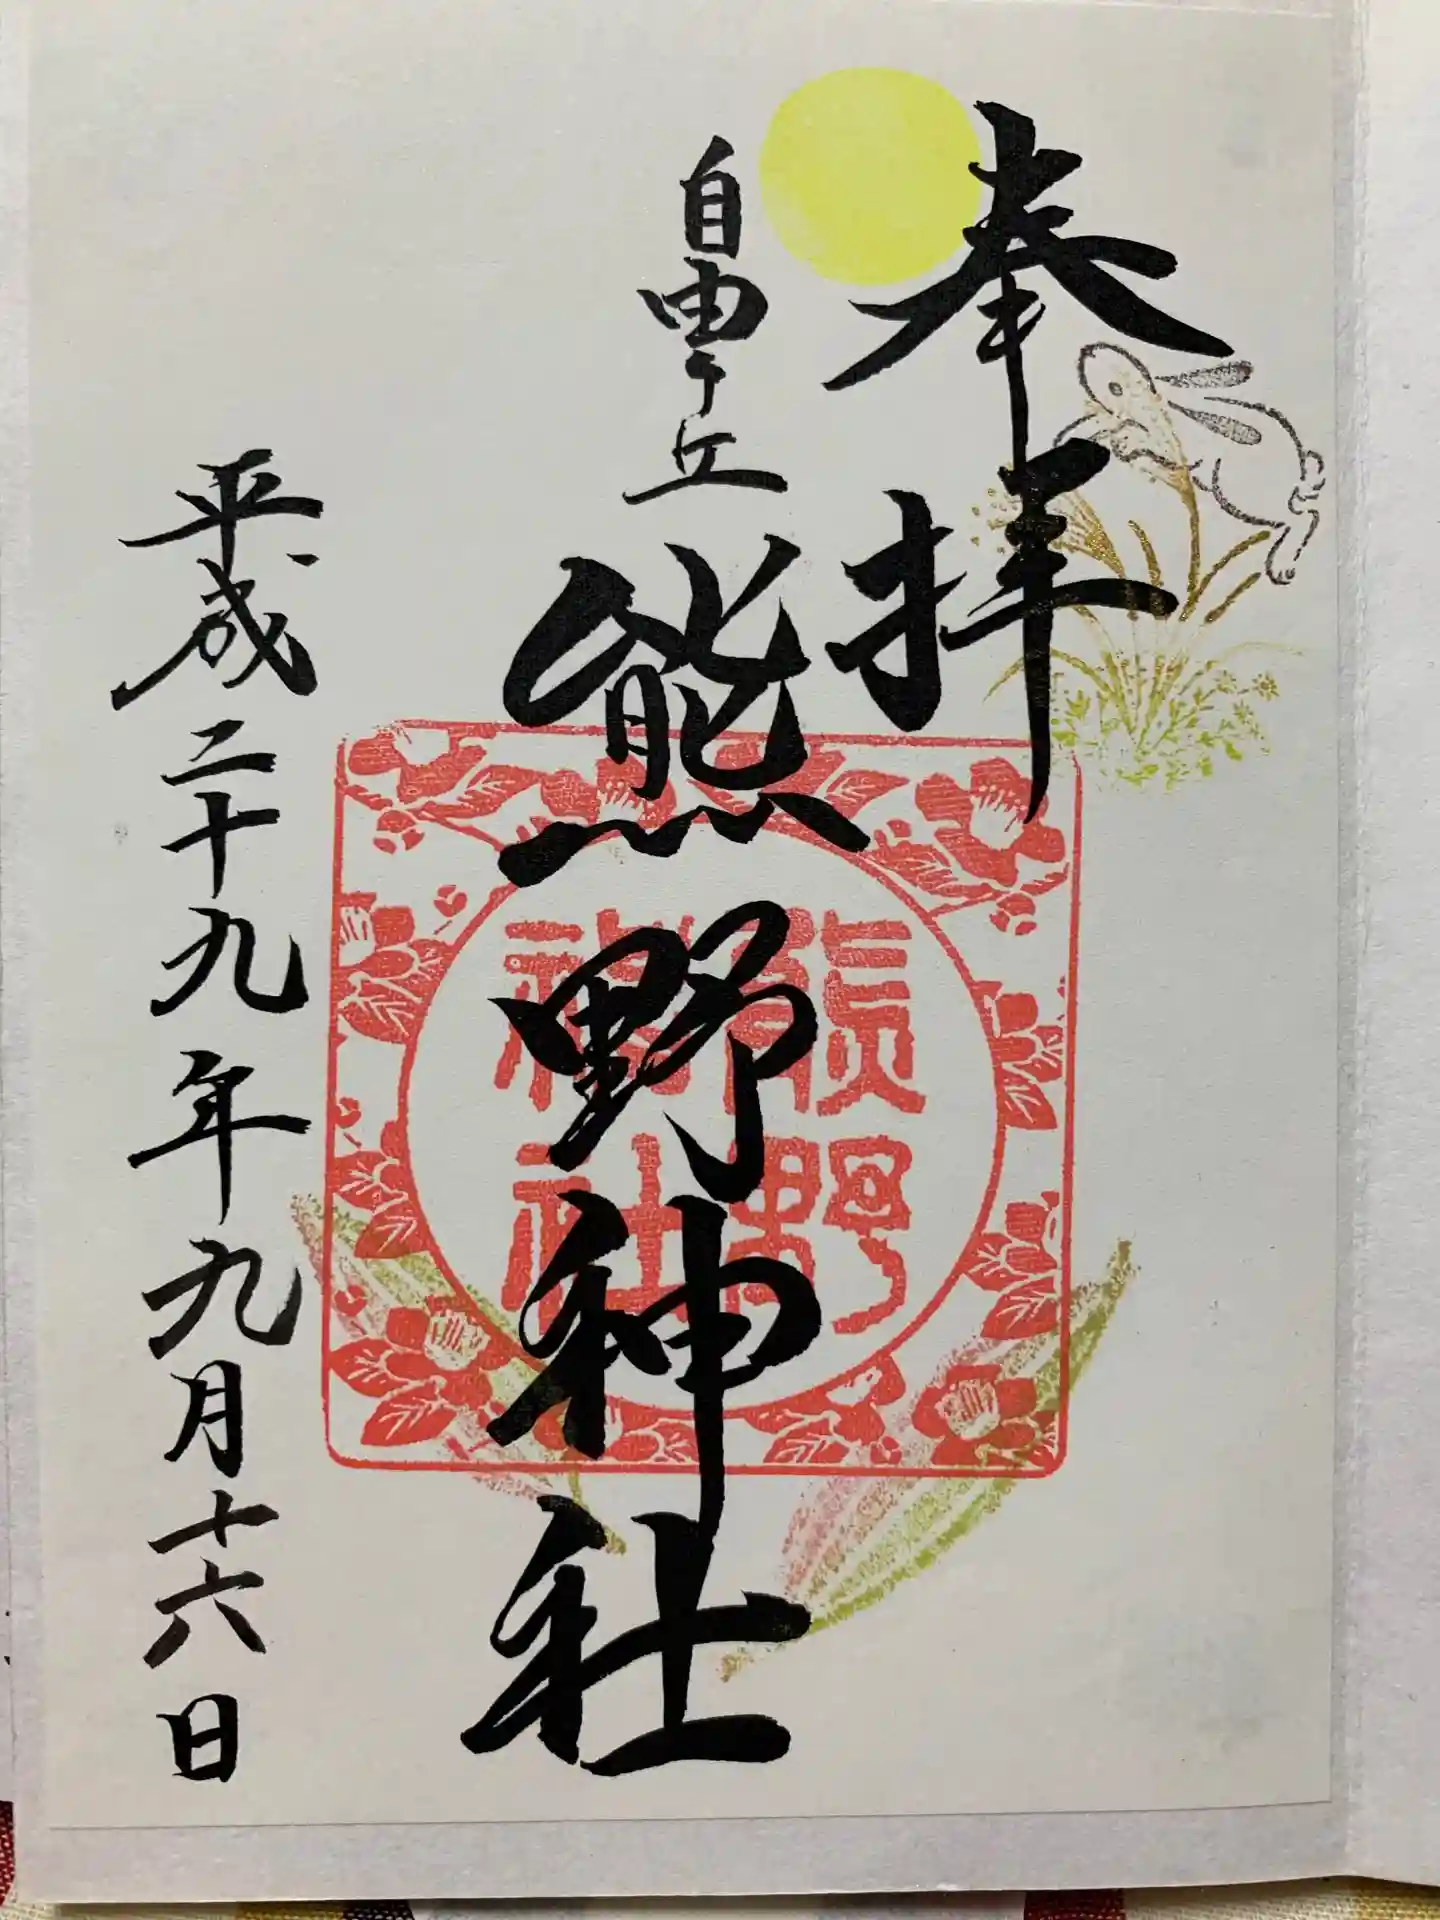 奉拝
自由ケ丘
熊野神社
熊野
神社
平成二十九年九月十六日